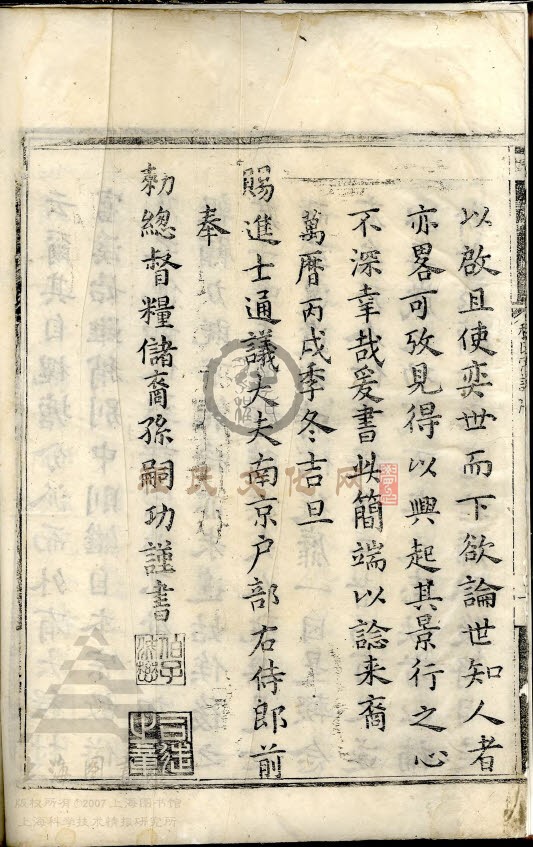 以啟且使奕世而下欲論世知人者
亦畧可攷見得以興起其景行之心
不深幸哉爰書此簡端以諗来裔
萬曆丙戌季冬吉旦
賜進士通議大夫南京户部右侍郎前
奉
勑總督糧儲裔孫嗣功謹書
程氏文化网
上海图
版权所有©2007上海图书馆
上海科学技术情报研究所